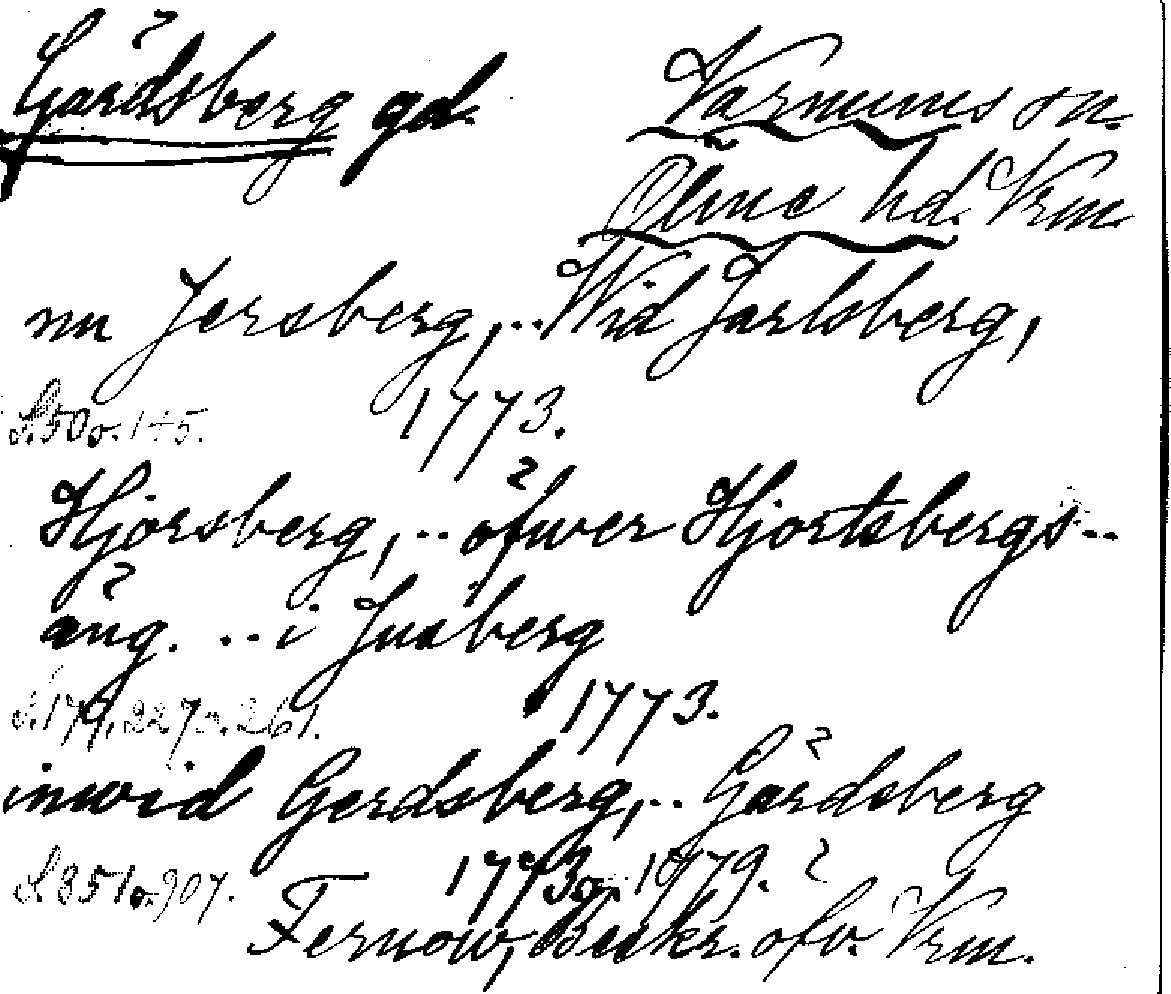 Gärdsberg gd. Varnums sn.
Ölme hd. Vrm.
nu Jersberg, .. Wid Jarlsberg,
S. 50 o. 145. 1773.
Hjorsberg, .. öfwer Hjortsbergs..
äng. .. i Jusberg
S. 179, 227 o. 261. 1773.
inwid Gerdsberg, .. Gärdsberg
S. 351 o. 907. 1773 o. 1779.
Fernow, Beskr. öfv. Vrm.